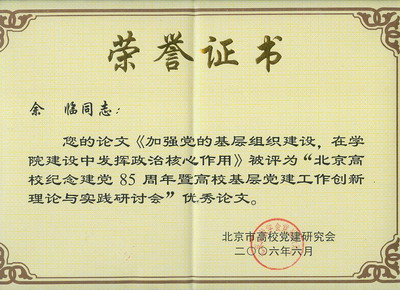 荣誉证书
余 临同志：
您的论文《加强党的基层组织建设，在学
院建设中发挥政治核心作用》被评为“北京高
校纪念建党85周年暨高校基层党建工作创新
理论与实践研讨会”优秀论文。
北京市高校党建研究会
二〇〇六年六月